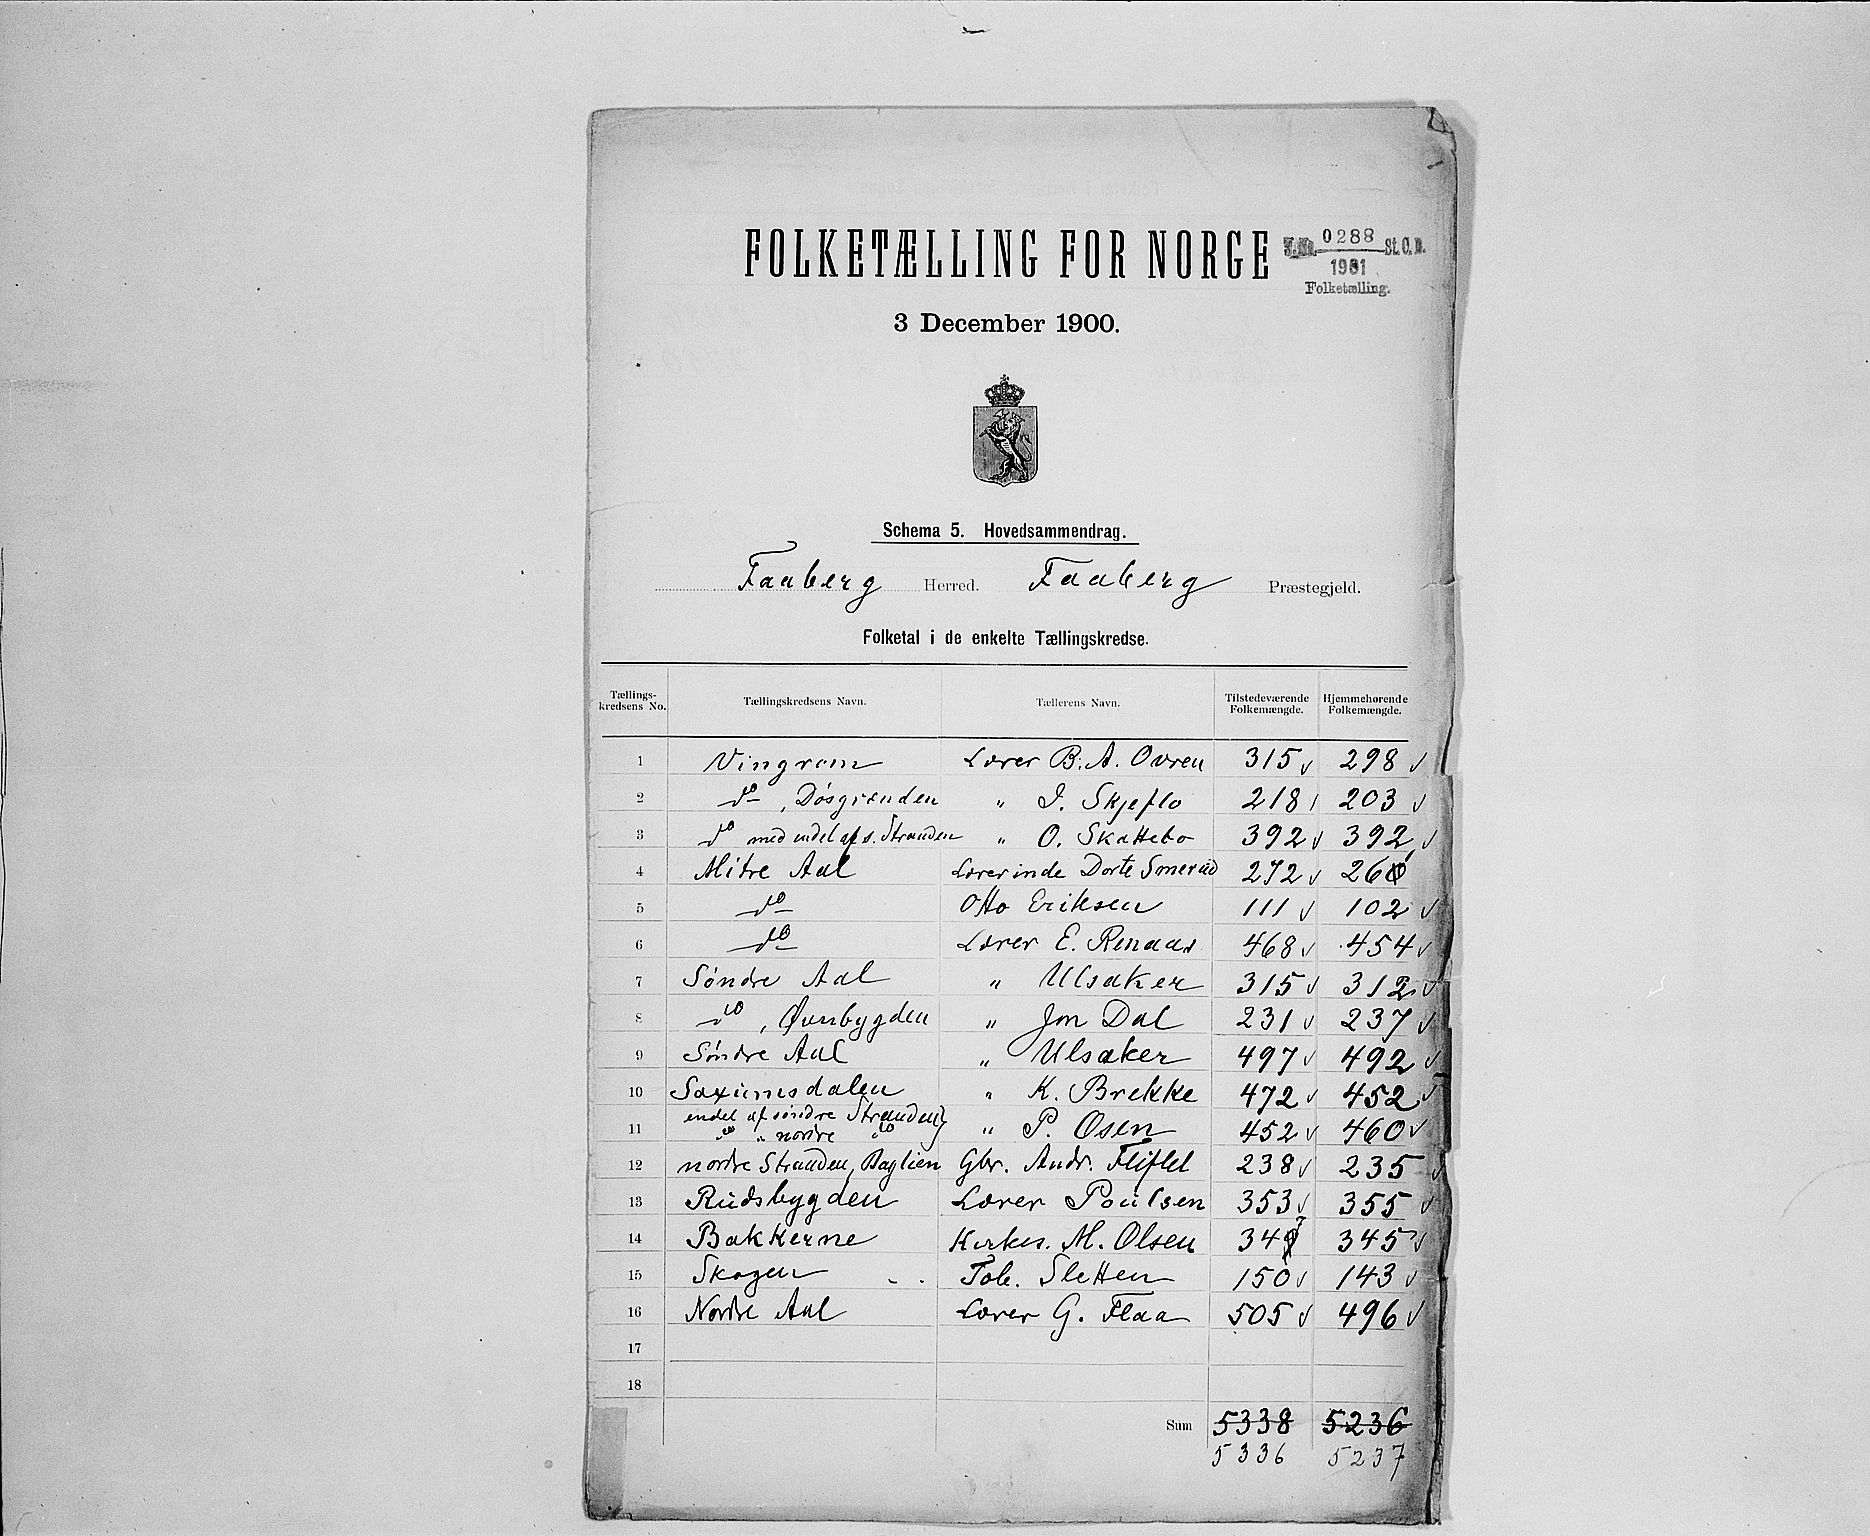 FOLKETÆLLING FOR NORGE
J.No. 0288 St.C.B.
1901
Folketælling.
3 December 1900.
Schema 5. Hovedsammendrag.
Faaberg Herred. Faaberg Præstegjeld.
Folketal i de enkelte Tællingskredse.
Tællings-kredsens No. Tællingskredsens Navn. Tællerens Navn. Tilstedeværende Folkemængde. Hjemmehørende Folkemængde.
1 Vingrom Lærer B. A. Ovren 315 298
2 do, Døsgrænden " I. Skjeflo 218 203
3 do med endel af s. Stranden " O. Skattebo 392 392
4 Mitre Aal Lærerinde Dorte Smerud 272 261
5 do Otto Eriksen 111 102
6 do Lærer E. Renaas 468 454
7 Søndre Aal " Ulsaker 315 312
8 do, Øvrebygden " Jon Dal 231 237
9 Søndre Aal " Ulsaker 497 492
10 Saxumsdalen " K. Brekke 472 452
11 endel af søndre Stranden } " P. Osen 452 460
do " nordre do
12 nordre Stranden, Baglien Gbr. Andr. Fliflet 238 235
13 Rudsbygden Lærer Poulsen 353 355
14 Bakkerne Kirkes. M. Olsen 347 345
15 Skogen Tob. Sletten 150 143
16 Nordre Aal Lærer G. Flaa 505 496
17
18
Sum 5338 5236
5336 5237